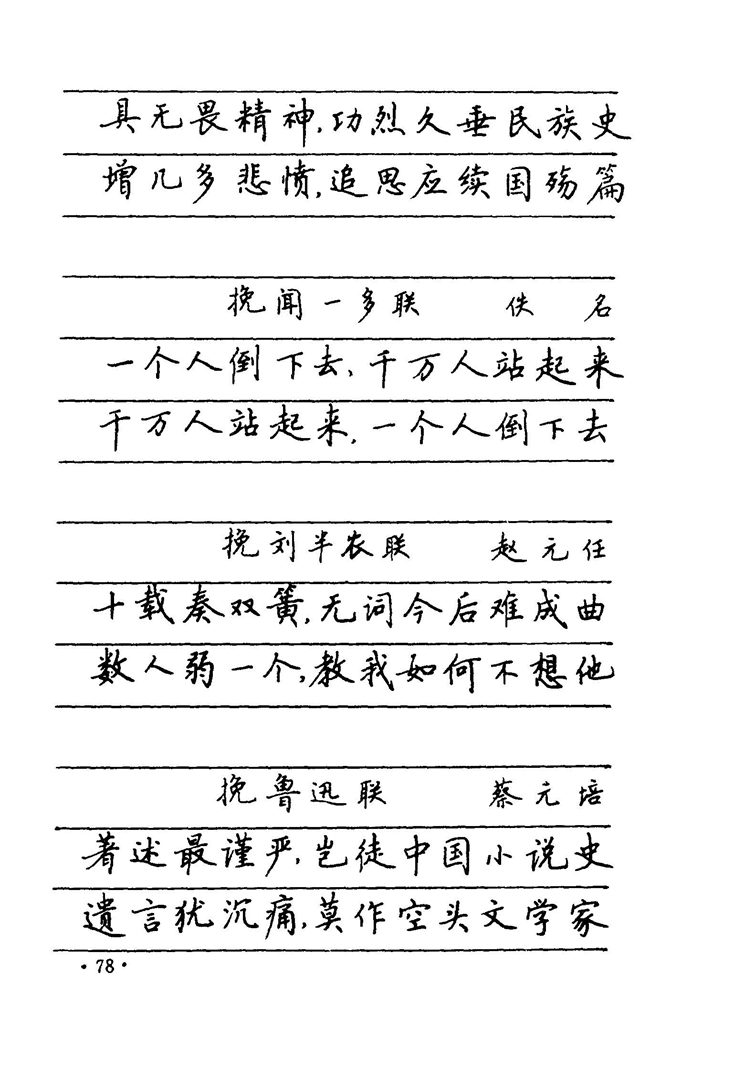 具无畏精神,功烈久垂民族史
增几多悲愤,追思应续国殇篇
挽闻一多联 佚名
一个人倒下去,千万人站起来
千万人站起来,一个人倒下去
挽刘半农联 赵元任
十载奏双簧,无词今后难成曲
数人弱一个,教我如何不想他
挽鲁迅联 蔡元培
著述最谨严,岂徒中国小说史
遗言犹沉痛,莫作空头文学家
·78·